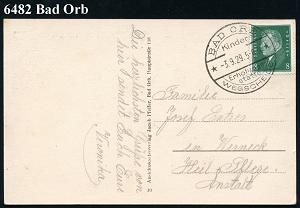 6482 Bad Orb
BAD ORB
Kinder
-3.9.29.5
Erholungs
WEGSCHEIDE
8
Die herzlichsten Grüße von
hier sendet Euch Eure
Veronika
Ansichtskartenverlag Jacob Pfeifer, Bad Orb, Hauptstraße
Familie
Josef
in Werneck
Heil- u. Pflege-
Anstalt